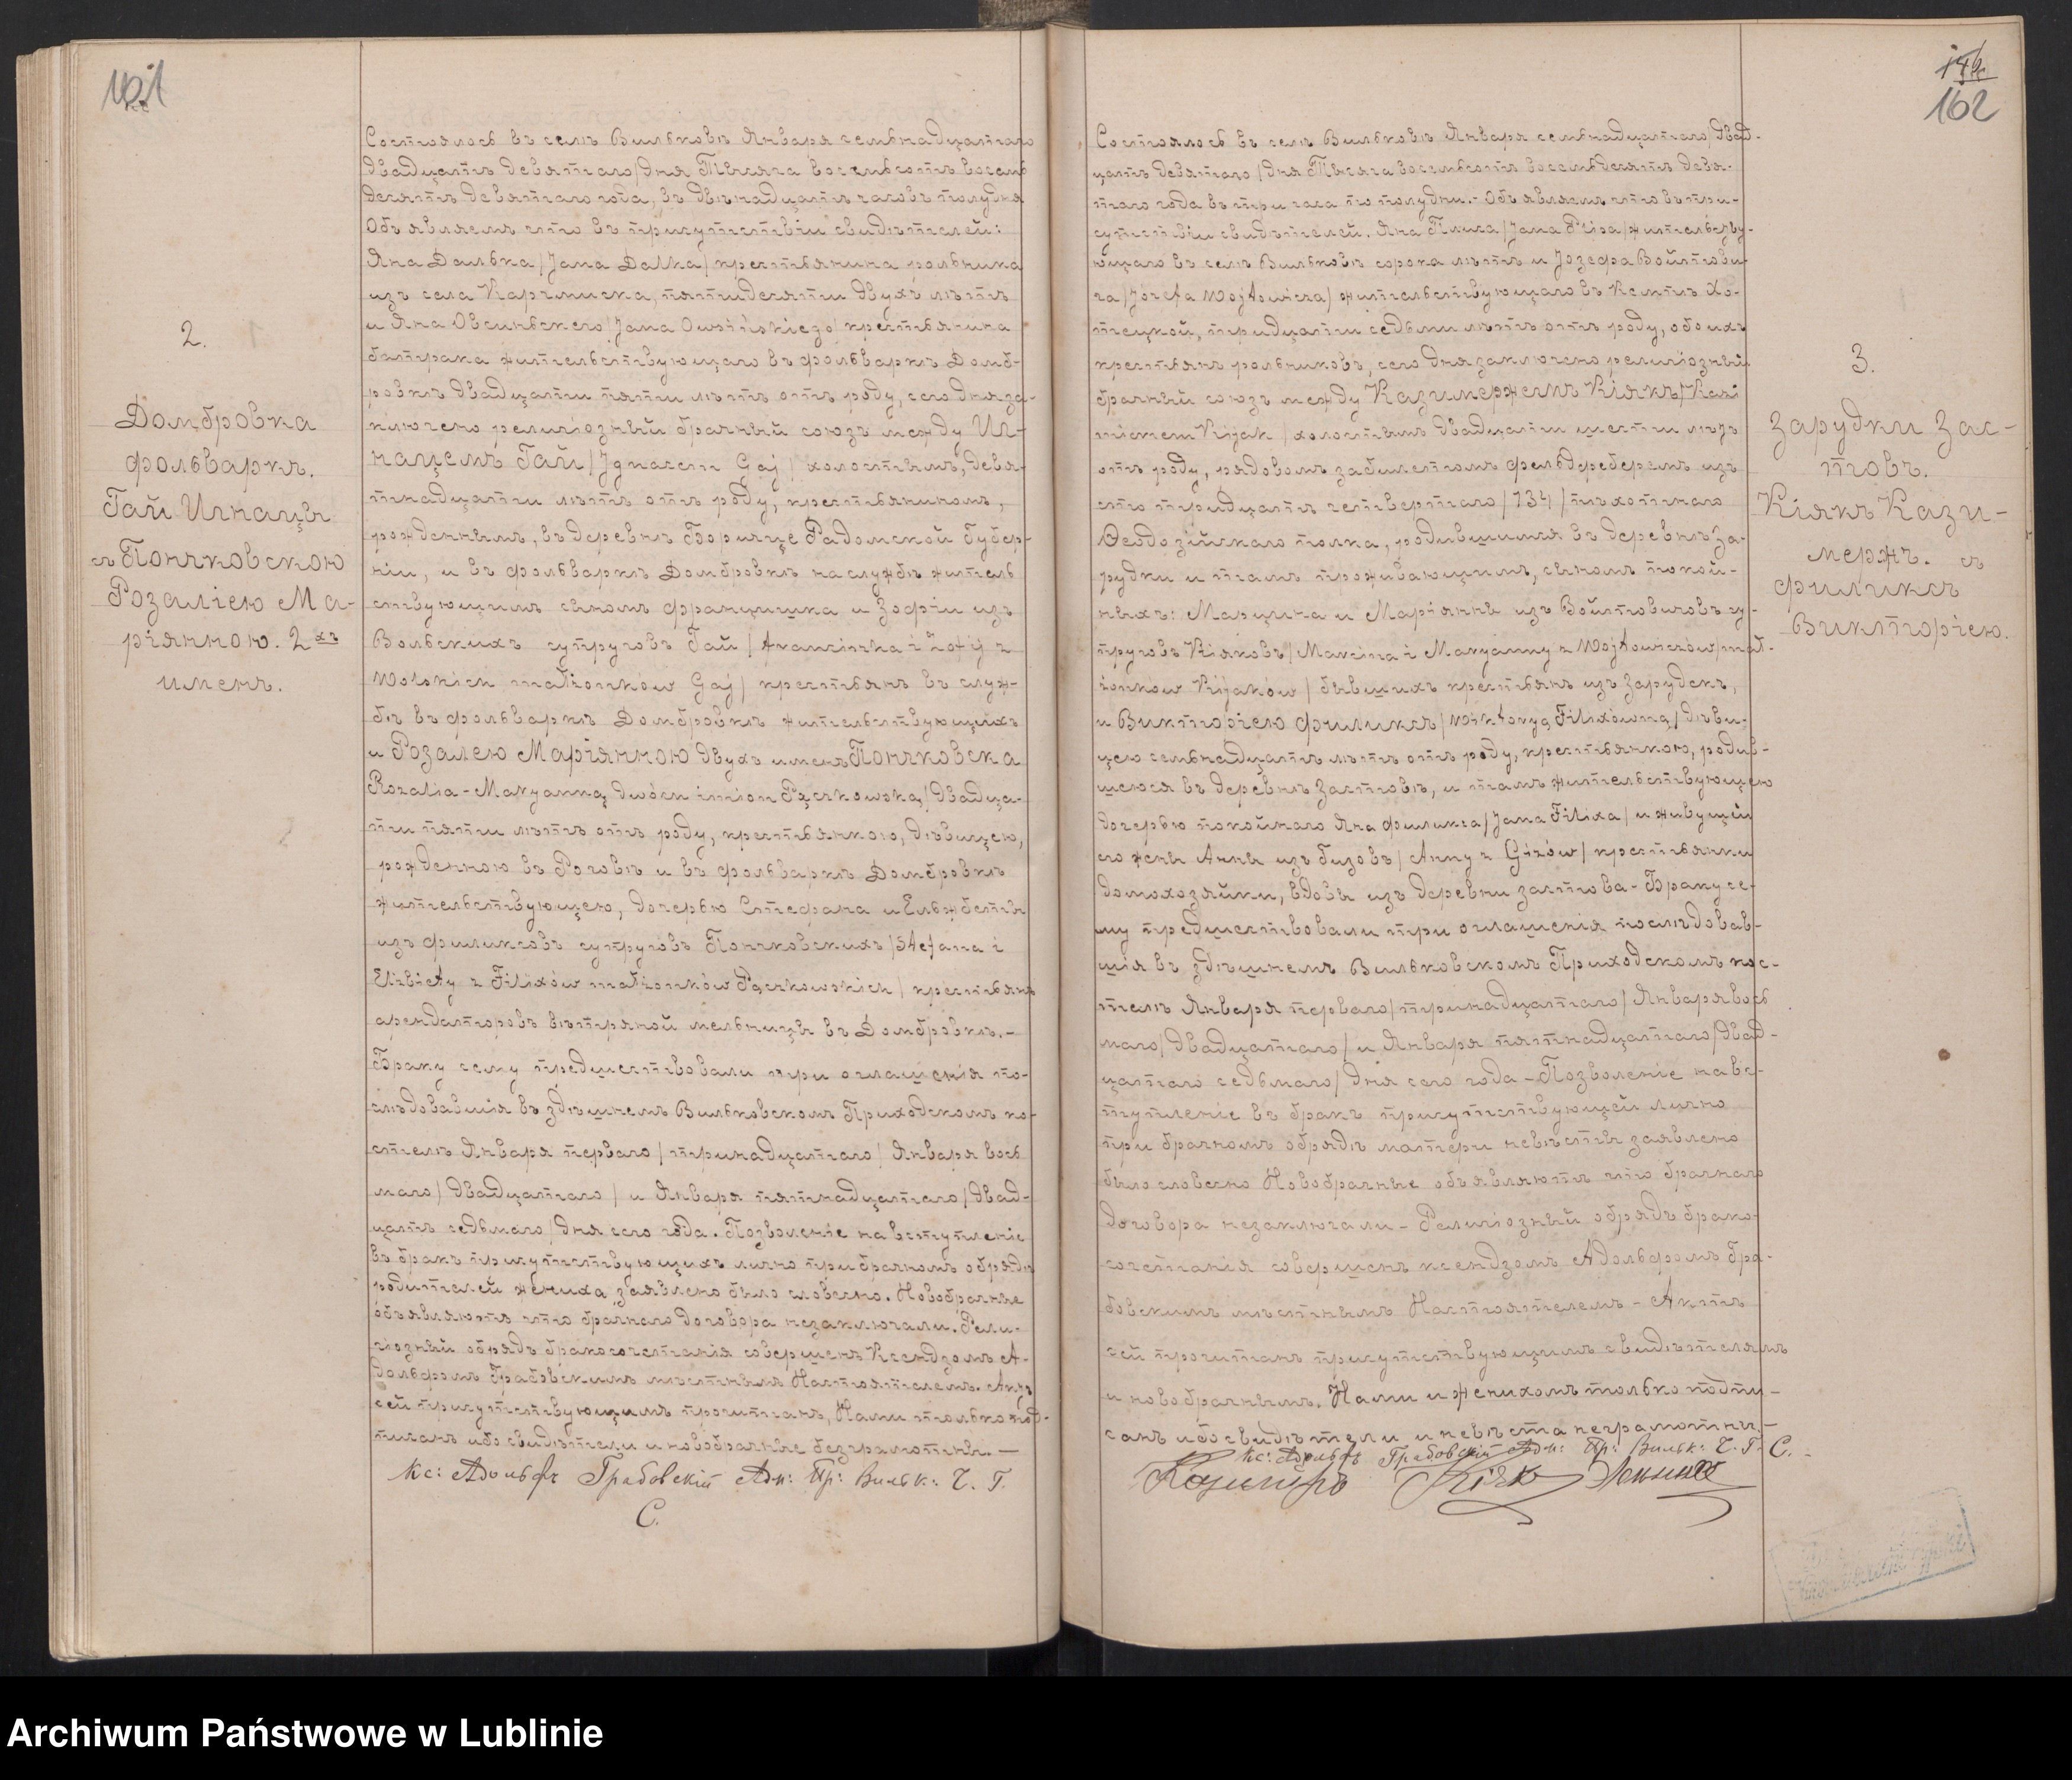 161
2.
Домбровка
фольваркъ.
Гай Игнацы
съ Пончковскою
Розаліею Ма-
ріянною. 2хъ
именъ.
Состоялось въ селѣ Вильковѣ Января семьнадцатаго
двадцать девятаго/дня Тысяча восемьсотъ восемь
десятъ девятаго года, въ двѣнадцать часовъ полудня
Объявляемъ что въ присутствіи свидѣтелей:
Яна Далька/Jana Dalka/крестьянина рольника
изъ села Карчмиска, пятидесяти двухъ лѣтъ
и Яна Овсиньскего/Jana Owsińskiego/крестьянина
батрака жительствующаго въ фольваркѣ Домб-
ровкѣ двадцати пяти лѣтъ отъ роду, сего дня за-
ключено религіозный брачный союзъ между Иг-
нацемъ Гай/Ignacem Gaj/холостымъ, девя-
тнадцати лѣтъ отъ роду, крестьяниномъ,
рожденнымъ, въ деревнѣ Борыце Радомской Губер-
ніи, и въ фольваркѣ Домбровкѣ на службѣ житель
ствующимъ сыномъ Францишка и Зофіи изъ
Вольскихъ супруговъ Гай/Franciszka i Zofij z
Wolskich małżonków Gaj/крестьянъ въ служ-
бѣ въ фольваркѣ Домбровкѣ жительствующихъ
и Розалею Маріянною двухъ именъ Пончковска
Rozalia-Maryanną dwóch imion Pączkowską/двадца-
ти пяти лѣтъ отъ роду, крестьянкою, дѣвицею,
рожденною въ Роговѣ и въ фольваркѣ Домбровкѣ
жительствующею, дочерью Стефана и Ельжбеты
изъ Филиксовъ супруговъ Пончковскихъ/Stefana i
Elzbiety z Filixów małżonków Pączkowskich/крестьянъ
арендаторовъ вѣтряной мельницы въ Домбровкѣ.-
Браку сему предшествовали три оглашенія по-
слѣдовавшія въ здѣшнемъ Вильковскомъ Приходскомъ ко-
стелѣ Января перваго/тринадцатаго/Января вось
маго/двадцатаго/и Января пятнадцатаго/двад-
цать седьмаго/дня сего года. Позволеніе на вступленіе
въ бракъ присутствующихъ лично при брачномъ обрядѣ
родителей жениха заявлено было словесно. Новобрачные
объявляютъ что брачнаго договора незаключали. Рели-
гіозный обрядъ бракосочетанія совершенъ Ксендзомъ А-
дольфомъ Грабовскимъ мѣстнымъ Настоятелемъ. Актъ
сей присутствующимъ прочитанъ, Нами только под-
писанъ ибо свидѣтели и новобрачные безграмотны.—
Кс: Адольфъ Грабовскій Адм: Пр: Вильк: Ч. Г.
С.
162
3.
Зарудки Зас-
товъ.
Кіякъ Кази-
мержъ. съ
Филиксъ
Викторіею.
Состоялось въ селѣ Вильковѣ Января семьнадцатаго/двад-
цать девятаго/дня Тысяча восемьсотъ восемьдесятъ девя-
таго года въ три часа по полудни.- Объявляемъ что въ при-
сутствіи свидѣтелей. Яна жительству-
ющаго въ селѣ Вильковѣ сорока лѣтъ и Іозефа Войтови-
ча/Józefa Wojtowicza/жительствующаго въ Кемпѣ Хо-
тецкой, тридцати седьми лѣтъ отъ роду, обоихъ
крестьянъ рольниковъ, сего дня заключено религіозный
брачный союзъ между Казимержемъ Кіякъ/Kazi
mierzem Kijak/холостымъ двадцати шести лѣтъ
отъ роду, рядовомъ забилетомъ фельдфеберемъ изъ
сто тридцать четвертаго/134/пѣхотнаго
Ѳеодозійскаго полка, родившимся въ деревнѣ За-
рудки и тамъ проживающимъ, сыномъ покой-
ныхъ: Марцина и Маріянны изъ Войтовичовъ су-
пруговъ Кіяковъ/Marcina i Maryanny z Wojtowiczów/mał-
żonków Kijaków/бывшихъ крестьянъ изъ Зарудекъ,
и Викторіею Филиксъ/Wiktoryą Filixówną/дѣви-
цею семьнадцать лѣтъ отъ роду, крестьянкою, родив-
шеюся въ деревнѣ Застовѣ, и тамъ жительствующею
дочерью покойнаго Яна Филикса/Jana Filixa/и живущей
его жены Анны изъ Гизовъ/Anny z Gizów/крестьянки
домохозяйки, вдовы изъ деревни Застова-Браку се-
му предшествовали три оглашенія послѣдовав-
шія въ здѣшнемъ Вильковскомъ Приходскомъ кос-
телѣ Января перваго/тринадцатаго/Января вось
маго/двадцатаго/и Января пятнадцатаго/двад-
цатаго седьмаго/дня сего года-Позволеніе на вс-
тупленіе въ бракъ присутствующей лично
при брачномъ обрядѣ матери невѣсты заявлено
было словесно Новобрачные объявляютъ что брачнаго
договора незаключали-Религіозный обрядъ брако-
сочетанія совершенъ ксендзомъ Адольфомъ Гра-
бовскимъ мѣстнымъ Настоятелемъ-Актъ
сей прочитанъ присутствующимъ свидѣтелямъ
и новобрачнымъ. Нами и женихомъ только подпи-
санъ ибо свидѣтели и невѣста неграмотны.-
Кс: Адольфъ Грабовскій Адм: Пр: Вильк: Ч. Г. С.
Archiwum Państwowe w Lublinie